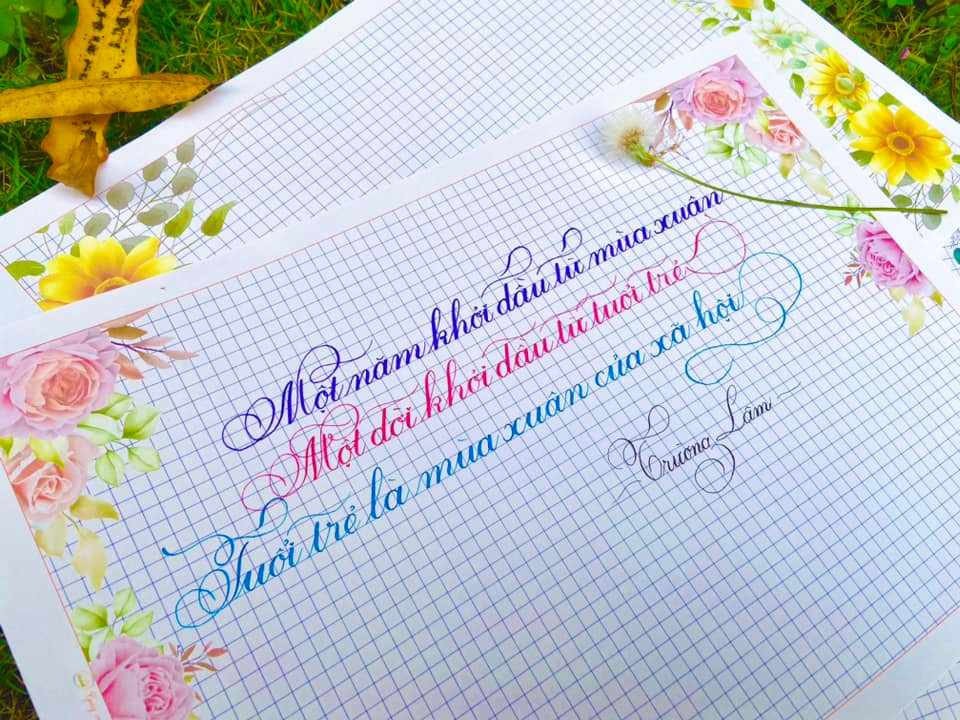 Một năm khởi đầu từ mùa xuân
Một đời khởi đầu từ tuổi trẻ
Tuổi trẻ là mùa xuân của xã hội
Trường Lâm